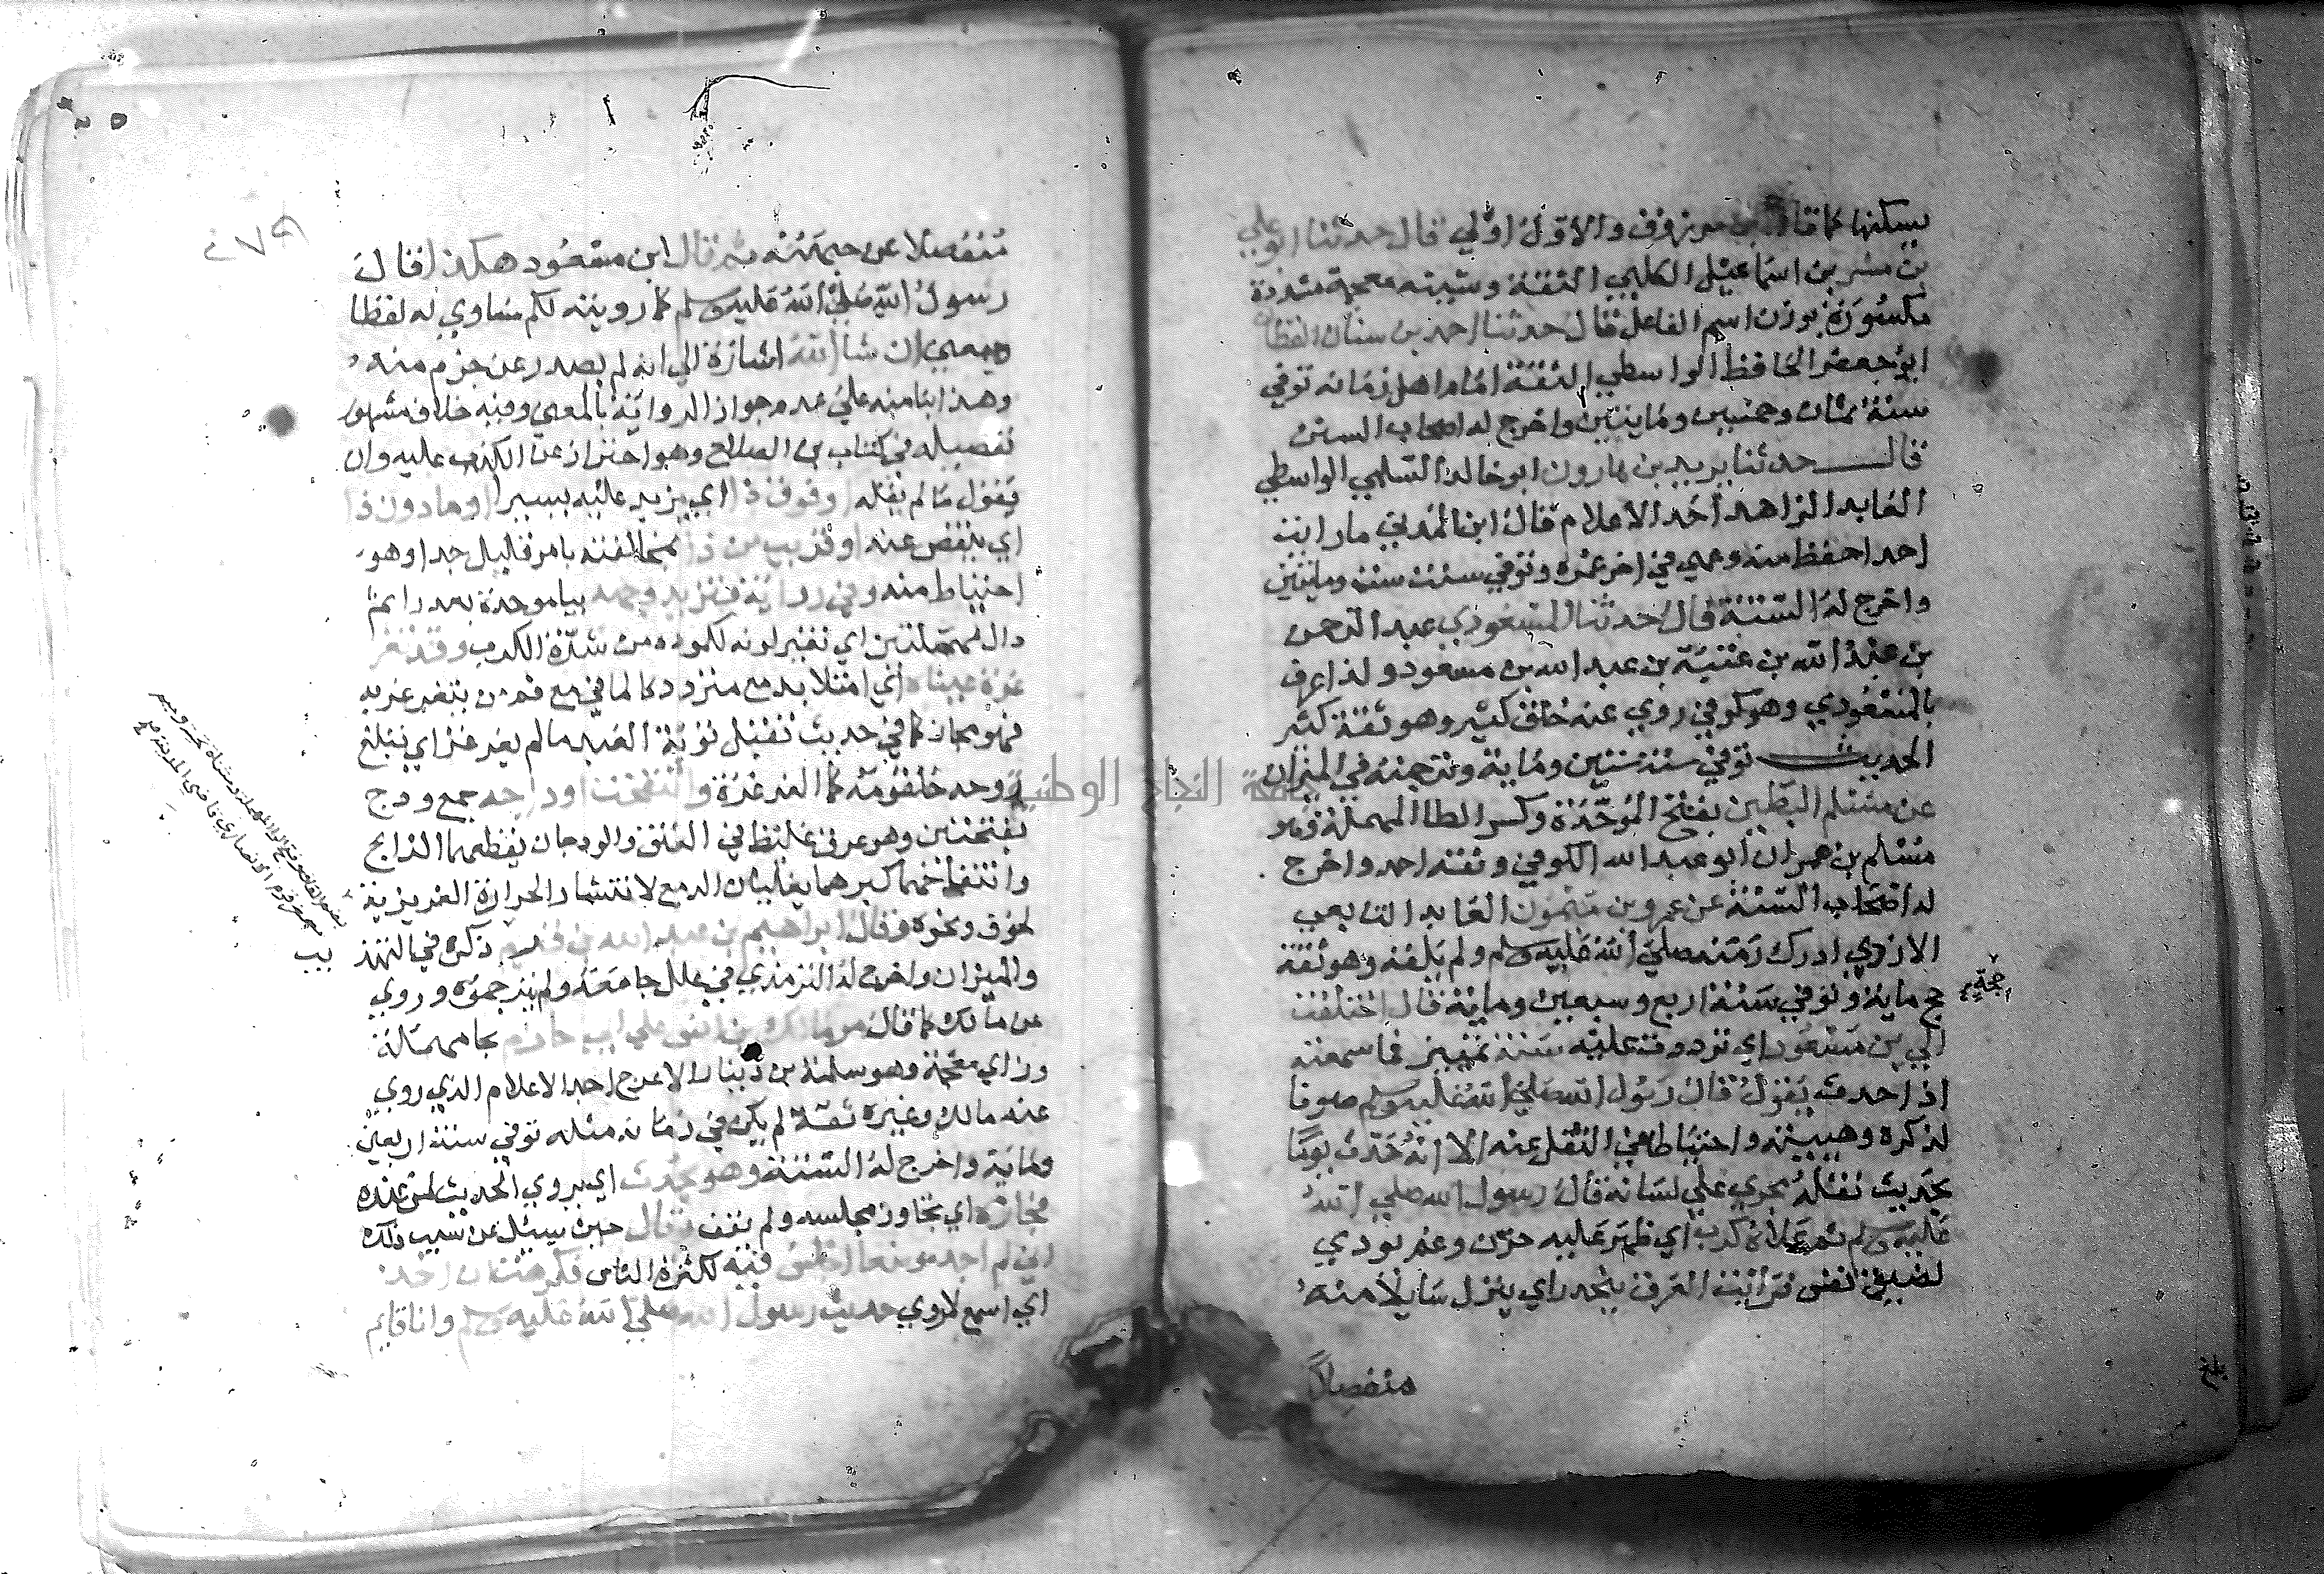 يسكنها كما قال بن مرزوق والاول اولي قال حدثنا ابو علي
بن مبشر بن اسماعيل الكلبي الثقة وشينه معجمة مشددة
مكسورة بوزن اسم الفاعل قال حدثنا احمد بن سنان القطان
ابو جعفر الحافظ الواسطي الثقة امام اهل زمانه توفي
سنة ثمان وخمسين ومايتين واخرج له اصحاب السنن
قال حدثنا يزيد بن هارون ابو خالد السلمي الواسطي
العابد الزاهد احد الاعلام قال ابن المديني ما رايت
احدا احفظ منه وعمي في اخر عمره وتوفي سنة ست ومايتين
واخرج له الستة قال حدثنا المسعودي عبد الرحمن
بن عبد الله بن عتبة بن عبد الله بن مسعود ولذا عرف
بالمسعودي وهو كوفي روي عنه خلق كثير وهو ثقة كثير
الحديث توفي سنة ستين وماية وترجمته في الميزان
عن مسلم البطين بفتح الموحدة وكسر الطا المهملة وهو
مسلم بن عمران ابو عبد الله الكوفي وثقه احمد واخرج
له اصحاب الستة عن عمرو بن ميمون العابد التابعي
الازدي ادرك زمنه صلي الله عليه وسلم ولم يلقه وهو ثقة
حج ماية وتوفي سنة اربع وسبعين وماية قال اختلفت
حجة
الي بن مسعود اي ترددت عليه سنة فما سمعته
اذا حدث يقول قال رسول الله صلي الله عليه وسلم صونا
لذكره وهيبته واحتياطا في النقل عنه الا انه حدث يوما
بحديث نقله بجري علي لسانه قال رسول الله صلي الله
عليه وسلم ثم علاه كرب اي ظهر عليه حزن وغم يودي
لضيق نفس فرايت العرق يتحدر اي ينزل سايلا منه
منفصلا
بلغ
٤٧٩
منفصلا عن جبهته ثم قال ابن مسعود هكذا قال
رسول الله صلي الله عليه وسلم كما رويته لكم مساوي له لفظا
ومعني ان شا الله اشارة الي انه لم يصدر عن جزم منه
وهذا بنا منه علي عدم جواز الرواية بالمعني وفيه خلاف مشهور
تفصيله في كتاب بن الصلاح وهو احتراز عن الكذب عليه وان
يقول ما لم يقله او فوق ذا اي يزيد عليه يسيرا او ما دون ذا
اي ينقص عنه او قريب من ذا بمخالفته بامر قليل جدا وهو
احتياط منه وفي رواية فتربد وجهه ببا موحدة بعد را ثم
دال مهملتين اي تغير لونه لكموده من شدة الكرب وقد تغر
غرة عيناه اي امتلا بدمع متردد كالما في مع فم من يتغرغر به
فهو مجاز كما في حديث تقبل توبة العبد ما لم يغرغر اي تبلغ
روحه حلقومه كما الغرغرة وانتفخت اوداجه جمع ودج
بفتحتين وهو عرق غليظ في العنق والودجان يقطعهما الذابح
وانتفاخهما كبرهما بغليان الدمع لانتشار الحرارة الغريزية
لخوف ونحوه وقال ابراهيم بن عبد الله بن قريم ذكره في التهذ
يب
بضم القاف وفتح الرا المهملة ومثناة تحتية وميم
بن قريم الانصاري قاضي المدينة
والميزان واخرج له الترمذي في علل جامعه ولم يترجموه وروي
عن مالك كما قال مر مالك بن انس علي ابي حازم بحا مهملة
وزاي معجمة وهو سلمة بن دينار الاعرج احد الاعلام الذي روي
عنه مالك وغيره ثقة لم يكن في زمانه مثله توفي سنة اربعين
وماية واخرج له الستة وهو يحدث اي يروي الحديث لمن عنده
فجازه اي تجاوز مجلسه ولم يقف وقال حين سيل عن سبب ذلك
اني لم اجد موضعا اجلس فيه لكثرة الناس فكرهت ان اخذ
اي اسمع لاروي حديث رسول الله صلي الله عليه وسلم وانا قايم
جامعة النجاح الوطنية